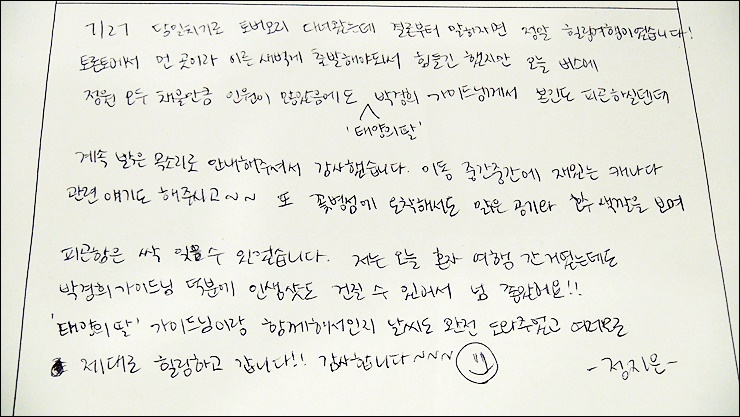 7/27 당일치기로 토버모리 다녀왔는데 결론부터 말하자면 정말 힐링여행이었습니다!
토론토에서 먼 곳이라 이른 새벽에 출발해야되서 힘들긴 했지만 오늘 버스에
정원 모두 채울만큼 인원이 많았음에도 박경희 가이드님께서 본인도 피곤하실텐데
'태양의 딸'
계속 밝은 목소리로 안내해주셔서 감사했습니다. 이동 중간중간에 재밌는 캐나다
관련 얘기도 해주시고~~ 또 꽃병섬에 도착해서도 맑은 공기와 호수 색깔을 보며
피곤함은 싹 잊을 수 있었습니다. 저는 오늘 혼자 여행 간거였는데도
박경희가이드님 덕분에 인생샷도 건질 수 있어서 넘 좋았어요!!
'태양의 딸' 가이드님이랑 함께해서인지 날씨도 완전 도와주었고 여러모로
제대로 힐링하고 갑니다!! 감사합니다~~~
-정지은-